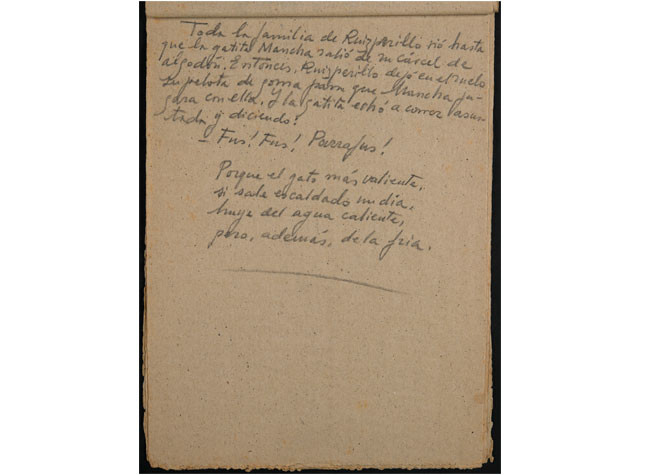 Toda la familia de Ruizperillo rió hasta
que la gatita Mancha salió de su cárcel de
algodón. Entonces, Ruizperillo dejó en el suelo
su pelota de goma para que Mancha ju-
gara con ella. Y la gatita echó a correr asus-
tada y diciendo:
– Fus! Fus! Parrafus!
Porque el gato más valiente,
si sale escaldado un día,
huye del agua caliente,
pero, además, de la fría.